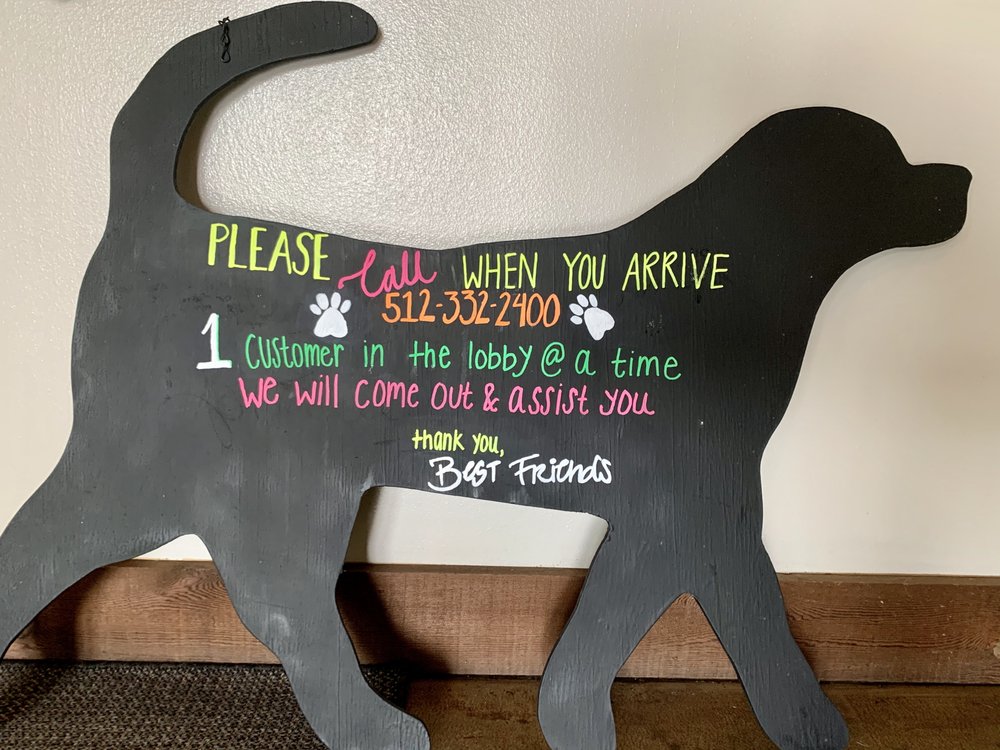 PLEASE Call WHEN YOU ARRIVE
512-332-2400
1 customer in the lobby @ a time
We will come out & assist you
thank you,
Best Friends